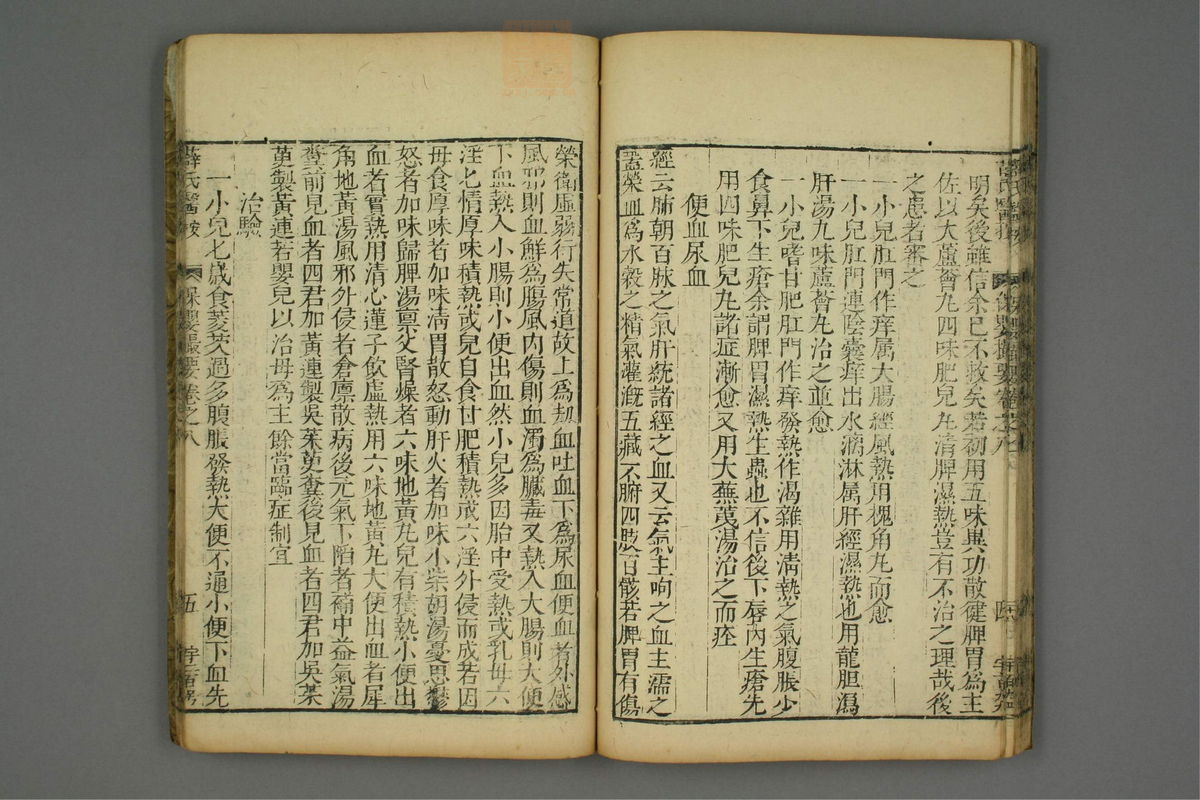 明矣後雖信余已不救矣若初用五味異功散健脾胃爲主
佐以大蘆薈九四味肥兒九清脾濕熱豈有不治之理哉後
之患者審之
一小兒肛門作痒属大腸經風熱用槐角九而愈
一小兒肛門連陰囊痒出水滴淋属肝經濕熱也用龍胆瀉
肝湯九味蘆薈九治之並愈
一小兒嗜甘肥肛門作痒發熱作渴雜用清熱之氣腹脹少
食鼻下生瘡余謂脾胃濕熱生蟲也不信後下唇內生瘡先
用四味肥兒九諸症漸愈又用大蕪荑湯治之而痊
便血尿血
經云肺朝百脉之氣肝統諸經之血又云氣主呴之血主濡之
蓋榮血爲水穀之精氣灌溉五藏六腑四肢百骸若脾胃有傷
榮衛虛弱行失常道故上爲衂血吐血下爲尿血便血者外感
風邪則血鮮爲腸風內傷則血濁爲臟毒又熱入大腸則大便
下血熱入小腸則小便出血然小兒多因胎中受熱或乳母六
淫七情厚味積熱或兒自食甘肥積熱或六淫外侵而成若因
母食厚味者加味清胃散怒動肝火者加味小柴胡湯憂思鬱
怒者加味歸脾湯禀父腎燥者六味地黃九兒有積熱小便出
血者實熱用清心蓮子飲虛熱用六味地黃九大便出血者犀
角地黃湯風邪外侵者倉廪散病後元氣下陷者補中益氣湯
糞前見血者四君加黃連製吳茱萸糞後見血者四君加吳茱
萸製黃連若嬰兒以治母爲主餘當臨症制宜
治驗
一小兒七歲食菱芡過多腹脹發熱大便不通小便下血先
薛氏醫按 保嬰撮要卷之八 五